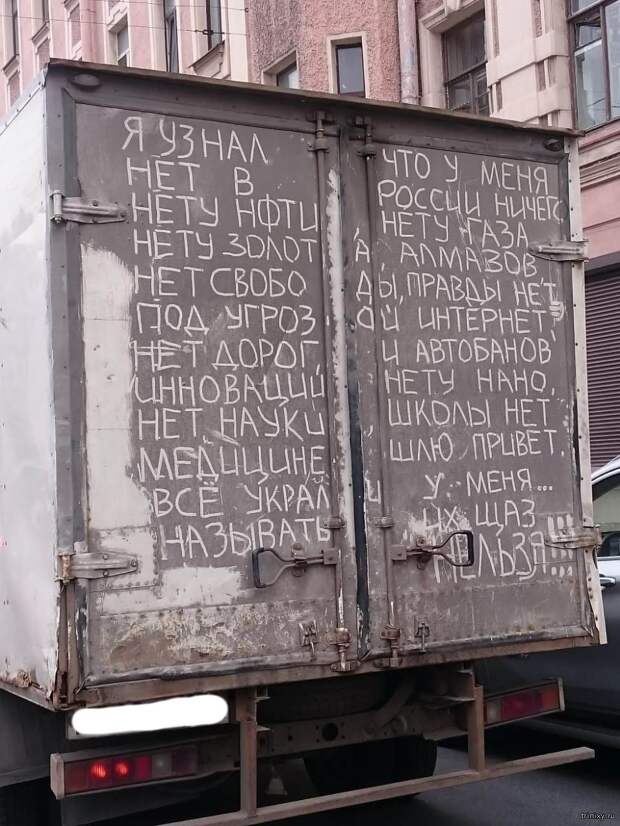 Я УЗНАЛ ЧТО У МЕНЯ
НЕТ В РОССИИ НИЧЕГО
НЕТУ НФТИ НЕТУ ГАЗА
НЕТУ ЗОЛОТА АЛМАЗОВ
НЕТ СВОБОДЫ, ПРАВДЫ НЕТ
ПОД УГРОЗОЙ ИНТЕРНЕТ
НЕТ ДОРОГ И АВТОБАНОВ
ИННОВАЦИЙ НЕТУ НАНО,
НЕТ НАУКИ, ШКОЛЫ НЕТ
МЕДИЦИНЕ ШЛЮ ПРИВЕТ.
ВСЁ УКРАЛИ У МЕНЯ...
НАЗЫВАТЬ ИХ ЩАЗ
НЕЛЬЗЯ!!!
trinixy.ru